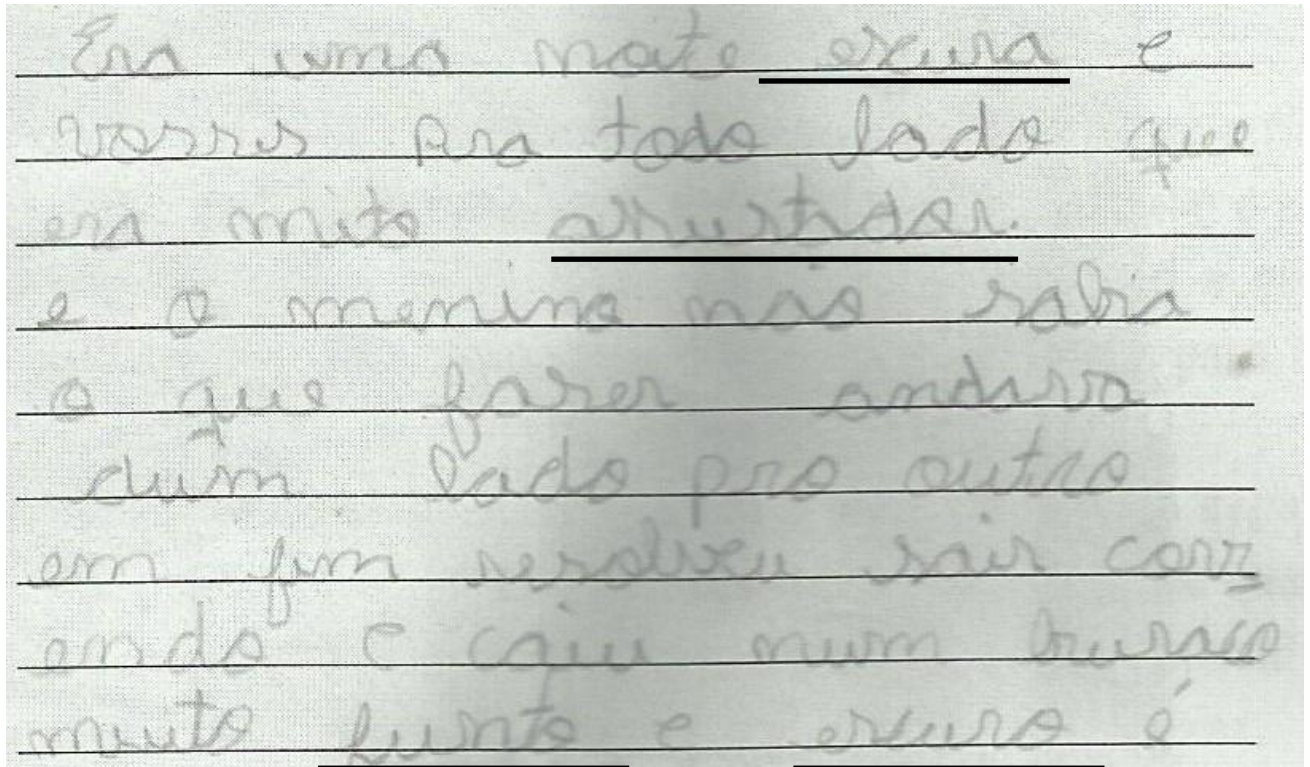 Era uma noite escura e
vozes pra todo lado que
era mito asustador.
e o menino não sabia
o que faser andava
dum lado pro outro
em fim resolveu sair corr
endo e caiu num buraco
muito funto e escuro é